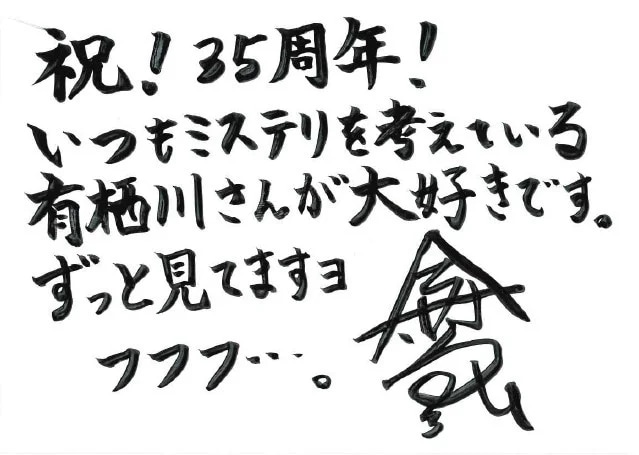 祝！35周年！
いつもミステリを考えている
有栖川さんが大好きです。
ずっと見てますヨ
フフフ…。